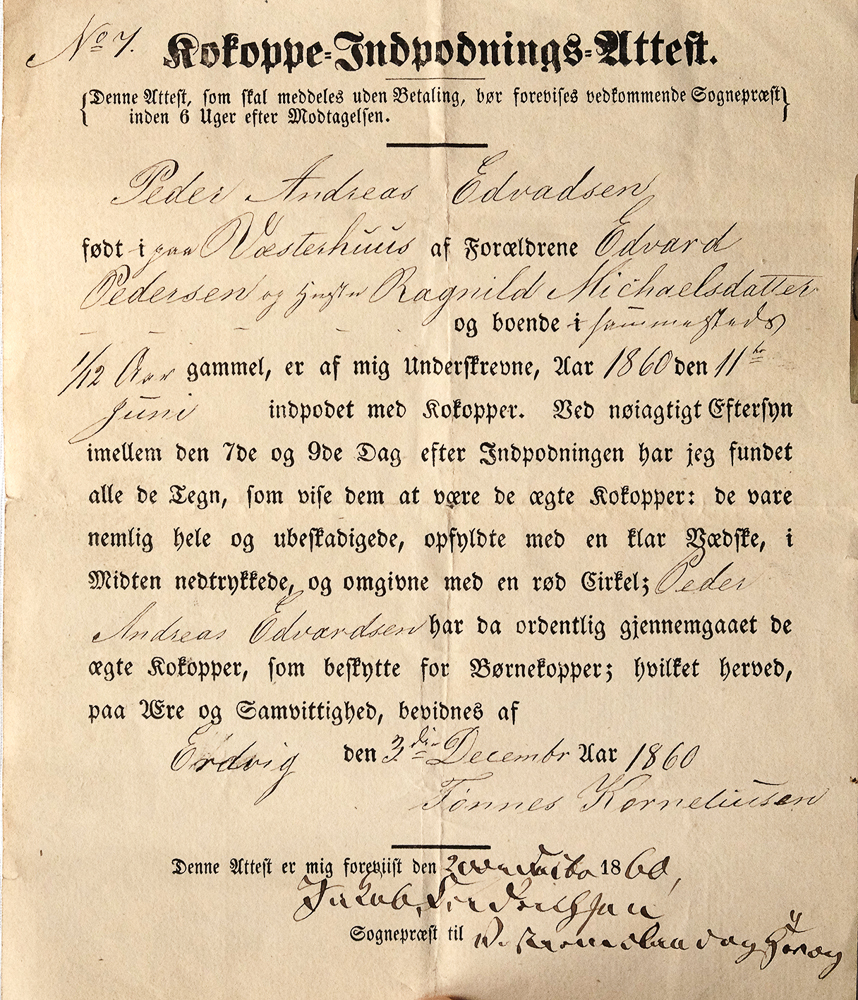 No 7. Kokoppe-Indpodnings-Attest.
Denne Attest, som skal meddeles uden Betaling, bør forevises vedkommende Sognepræst
inden 6 Uger efter Modtagelsen.
Peder Andreas Edvadsen
født i paa Væsterhuus af Forældrene Edvard
Pedersen og Ragnild Michaelsdatter
og boende i sammesteds
1/12 Aar gammel, er af mig Underskrevne, Aar 1860 den 11te
Juni indpodet med Kokopper. Ved nøiagtigt Eftersyn
imellem den 7de og 9de Dag efter Indpodningen har jeg fundet
alle de Tegn, som vise dem at være de ægte Kokopper: de vare
nemlig hele og ubeskadigede, opfyldte med en klar Vædske, i
Midten nedtrykkede, og omgivne med en rød Cirkel; Peder
Andreas Edvardsen har da ordentlig gjennemgaaet de
ægte Kokopper, som beskytte for Børnekopper; hvilket herved,
paa Ære og Samvittighed, bevidnes af
Erdvig den 3die Decembr Aar 1860
Tønnes Korneliussen
Denne Attest er mig foreviist den 1860,
Sognepræst til